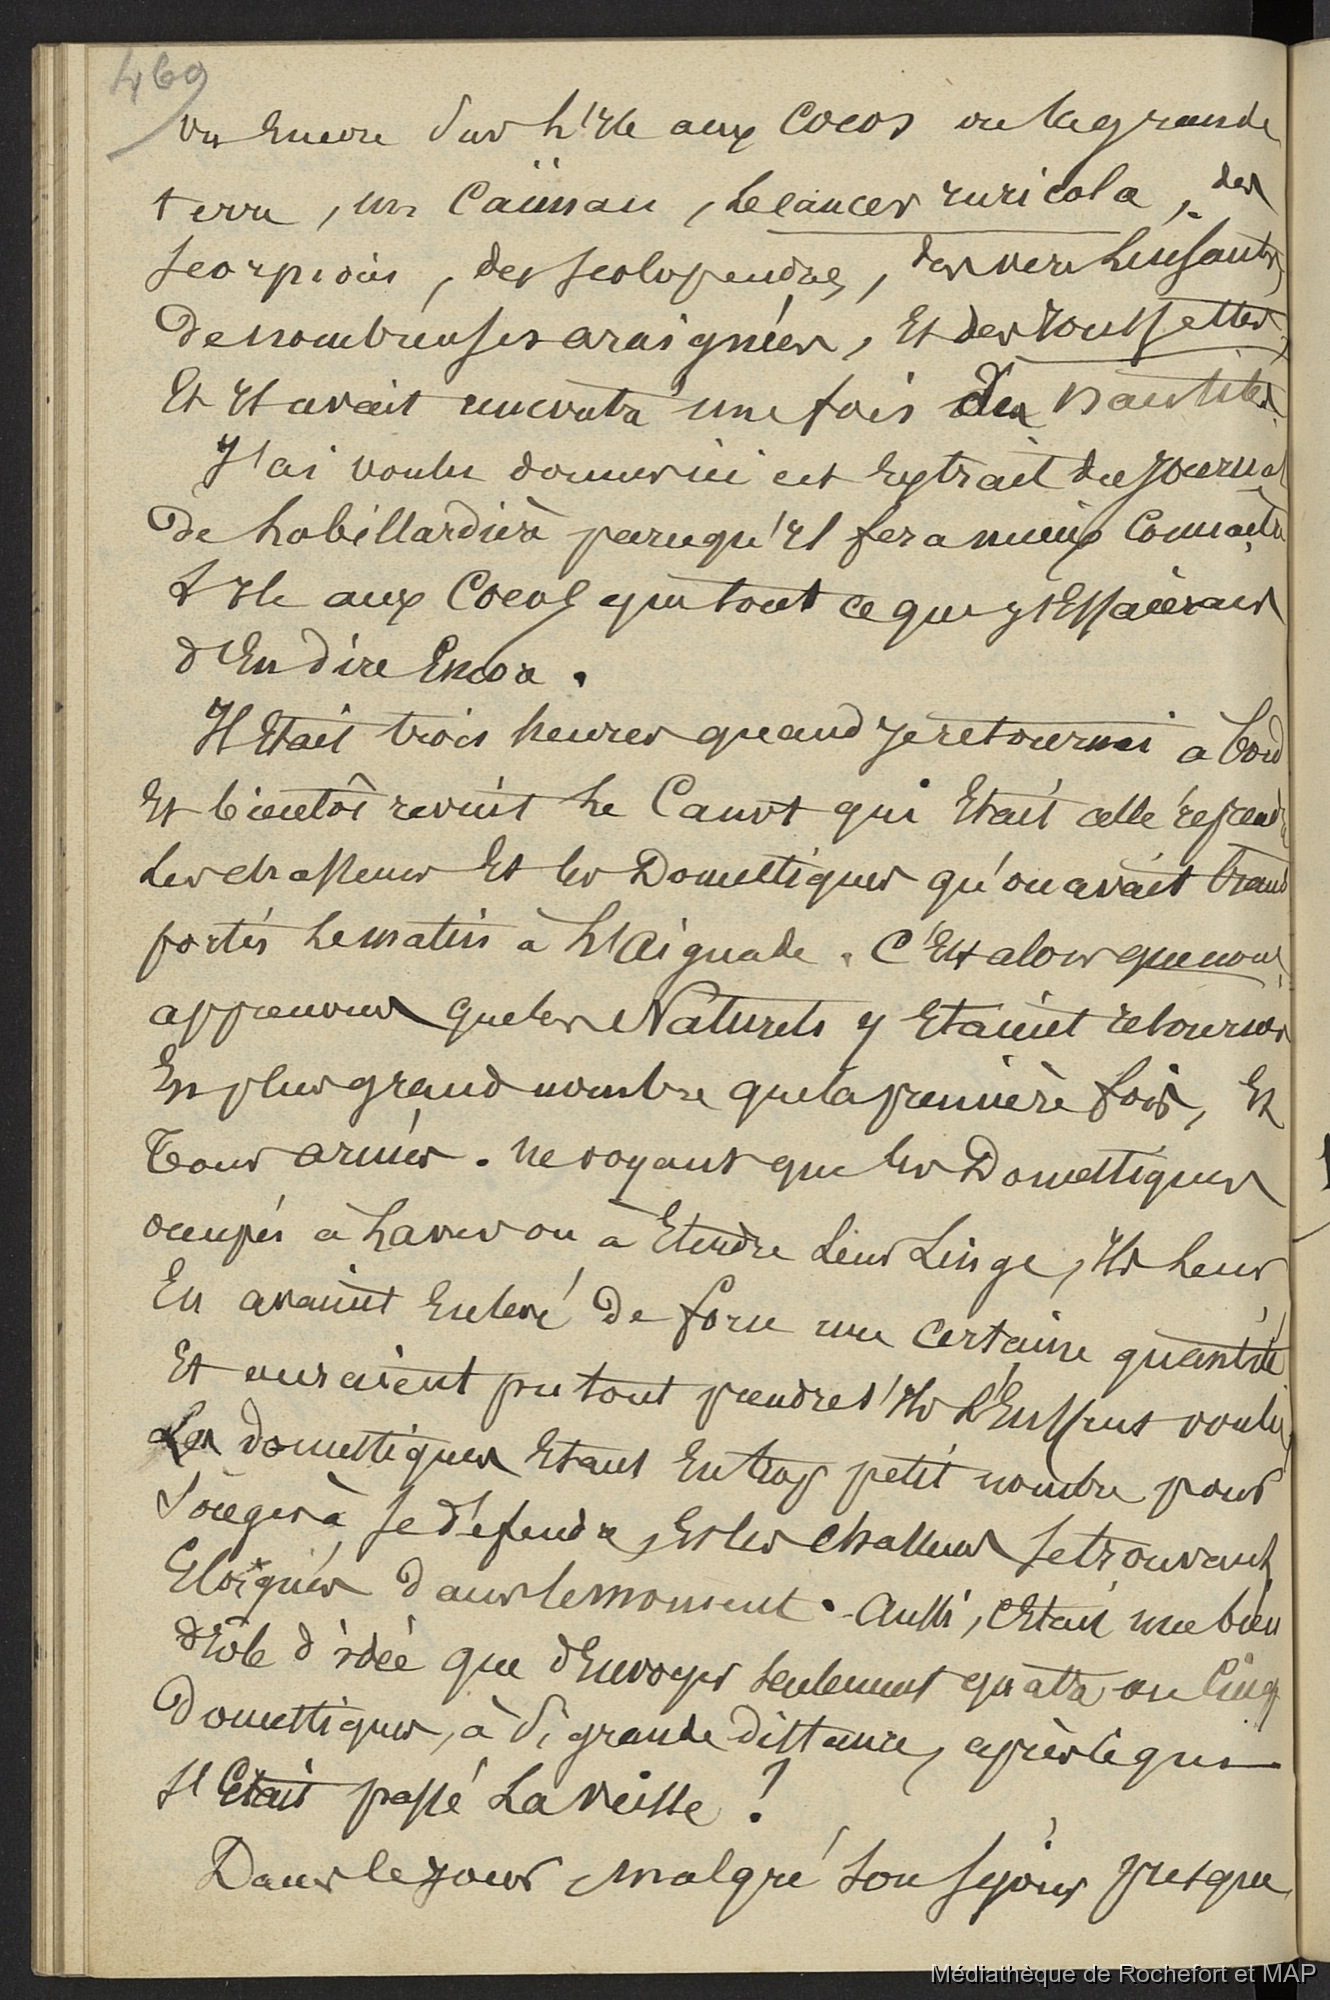 469
vu encore sur L'Ile aux Cocos ou la grande
terre, un Caïman, Le cancer ruricola, des
scorpions, des scolopendres, des vers Luisants,
De nombreuses araignées, Et des roussettes,
Et Il avait rencontré une fois des nautiles.
J'ai voulu donner ici cet Extrait du Journal
De Labillardière parcequ'Il fera mieux Connaitre
L'Ile aux Cocos que tout ce que j'Essaierais
d'En dire Encore.
Il Etait trois heures quand je retournai à bord
Et bientôt revint Le Canot qui Etait allé reprendre
Les chasseurs Et les Domestiques qu'on avait trans
portés Le matin à L'Aiguade. C'Est alors que nous
apprimes que les Naturels y Etaient retournés
En plus grand nombre que la première fois, Et
Tous armés. ne voyant que les Domestiques
occupés à Laver ou à Etendre Leur Linge, Ils Leur
En avaient Enlevé De force une certaine quantité
Et auraient pu tout prendre s'Ils L'Eussent voulu,
Les domestiques Etant En trop petit nombre pour
Songer à se défendre, Et les chasseurs se trouvant
Eloignés dans le moment. Aussi, c'Etait une bien
drôle d'idée que d'Envoyer seulement quatre ou Cinq
Domestiques, à Si grande distance, après ce qui
s'Etait passé La veille !
Dans le jour, malgré son séjour presque
Médiathèque de Rochefort et MAP